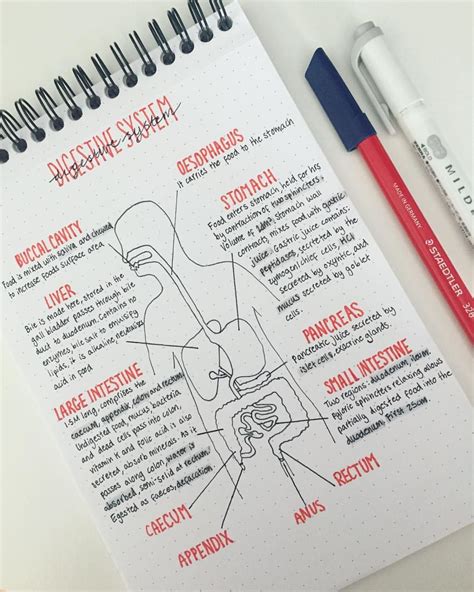 DIGESTIVE SYSTEM
digestive system
OESOPHAGUS
It carries the food to the stomach
BUCCAL CAVITY
Food is mixed with saliva and chewed
to increase foods surface area
STOMACH
Food enters stomach, held for hrs
by contraction of two sphincters,
volume of stomach wall
contracts, mixes food with gastric
juice. Gastric juice contains:
peptidases, secreted by the
zymogen/chief cells. HCl
secreted by oxyntic and
mucus secreted by goblet
cells.
LIVER
Bile is made here, stored in the
gall bladder passes through bile
duct to duodenum. Contains no
enzymes, bile salt to emulsify
lipids, it is alkaline neutralizes
acid in food.
PANCREAS
Pancreatic juice secreted by
islet cells, exocrine glands.
LARGE INTESTINE
1.5M long, comprises the
caecum, appendix, colon and rectum
Undigested food, mucus, bacteria
and dead cells pass into colon,
vitamin K and folic acid is also
secreted, absorb minerals. As it
passes along colon, water is
absorbed, semi-solid at rectum
Egested as faeces, defacation.
SMALL INTESTINE
Two regions: duodenum, ileum.
Pyloric sphincters relaxing allows
partially digested food into the
duodenum, first 25cm.
CAECUM
APPENDIX
ANUS
RECTUM
MADE IN GERMANY
STAEDTLER 326
MILD